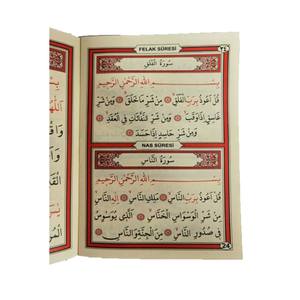 FELAK SÛRESİ
٢٤
سُورَةُ الْفَلَقِ
بِسْمِ اللّٰهِ الرَّحْمٰنِ الرَّحِيمِ
قُلْ اَعُوذُ بِرَبِّ الْفَلَقِ ۞ مِنْ شَرِّ مَا خَلَقَ ۞ وَمِنْ شَرِّ
غَاسِقٍ اِذَا وَقَبَ ۞ وَمِنْ شَرِّ النَّفَّاثَاتِ فِي الْعُقَدِ
۞ وَمِنْ شَرِّ حَاسِدٍ اِذَا حَسَدَ ۞
NAS SÛRESİ
سُورَةُ النَّاسِ
بِسْمِ اللّٰهِ الرَّحْمٰنِ الرَّحِيمِ
قُلْ اَعُوذُ بِرَبِّ النَّاسِ ۞ مَلِكِ النَّاسِ ۞ اِلٰهِ النَّاسِ ۞
مِنْ شَرِّ الْوَسْوَاسِ الْخَنَّاسِ ۞ اَلَّذِي يُوَسْوِسُ
فِي صُدُورِ النَّاسِ ۞ مِنَ الْجِنَّةِ وَالنَّاسِ
24